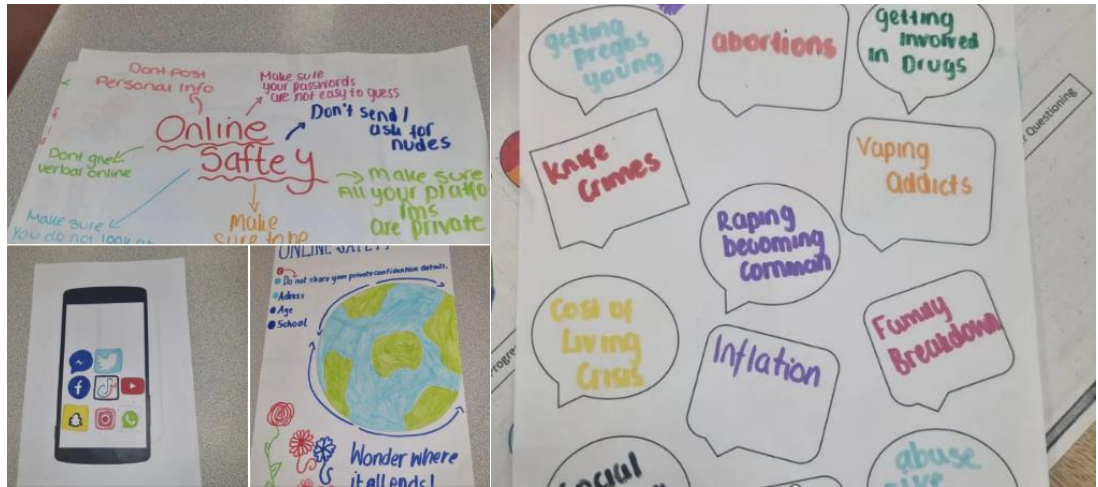 Dont Post
Personal Info
Make sure
your passwords
are not easy to guess
Online
Saftey
Don't send /
ask for
nudes
Dont give
verbal online
make sure
All your platfo
rms
are private
Make sure
You do not look at
Make
sure to be
ONLINE SAFETY
Do not share your private confidention details.
Adress
Age
School
Wonder where
it all ends!
getting
pregos
young
abortions
getting
involved
in Drugs
Knife
Crimes
Vaping
Addicts
Raping
becoming
common
Cost of
Living
Crisis
Inflation
Family
Breakdown
abuse
Questioning